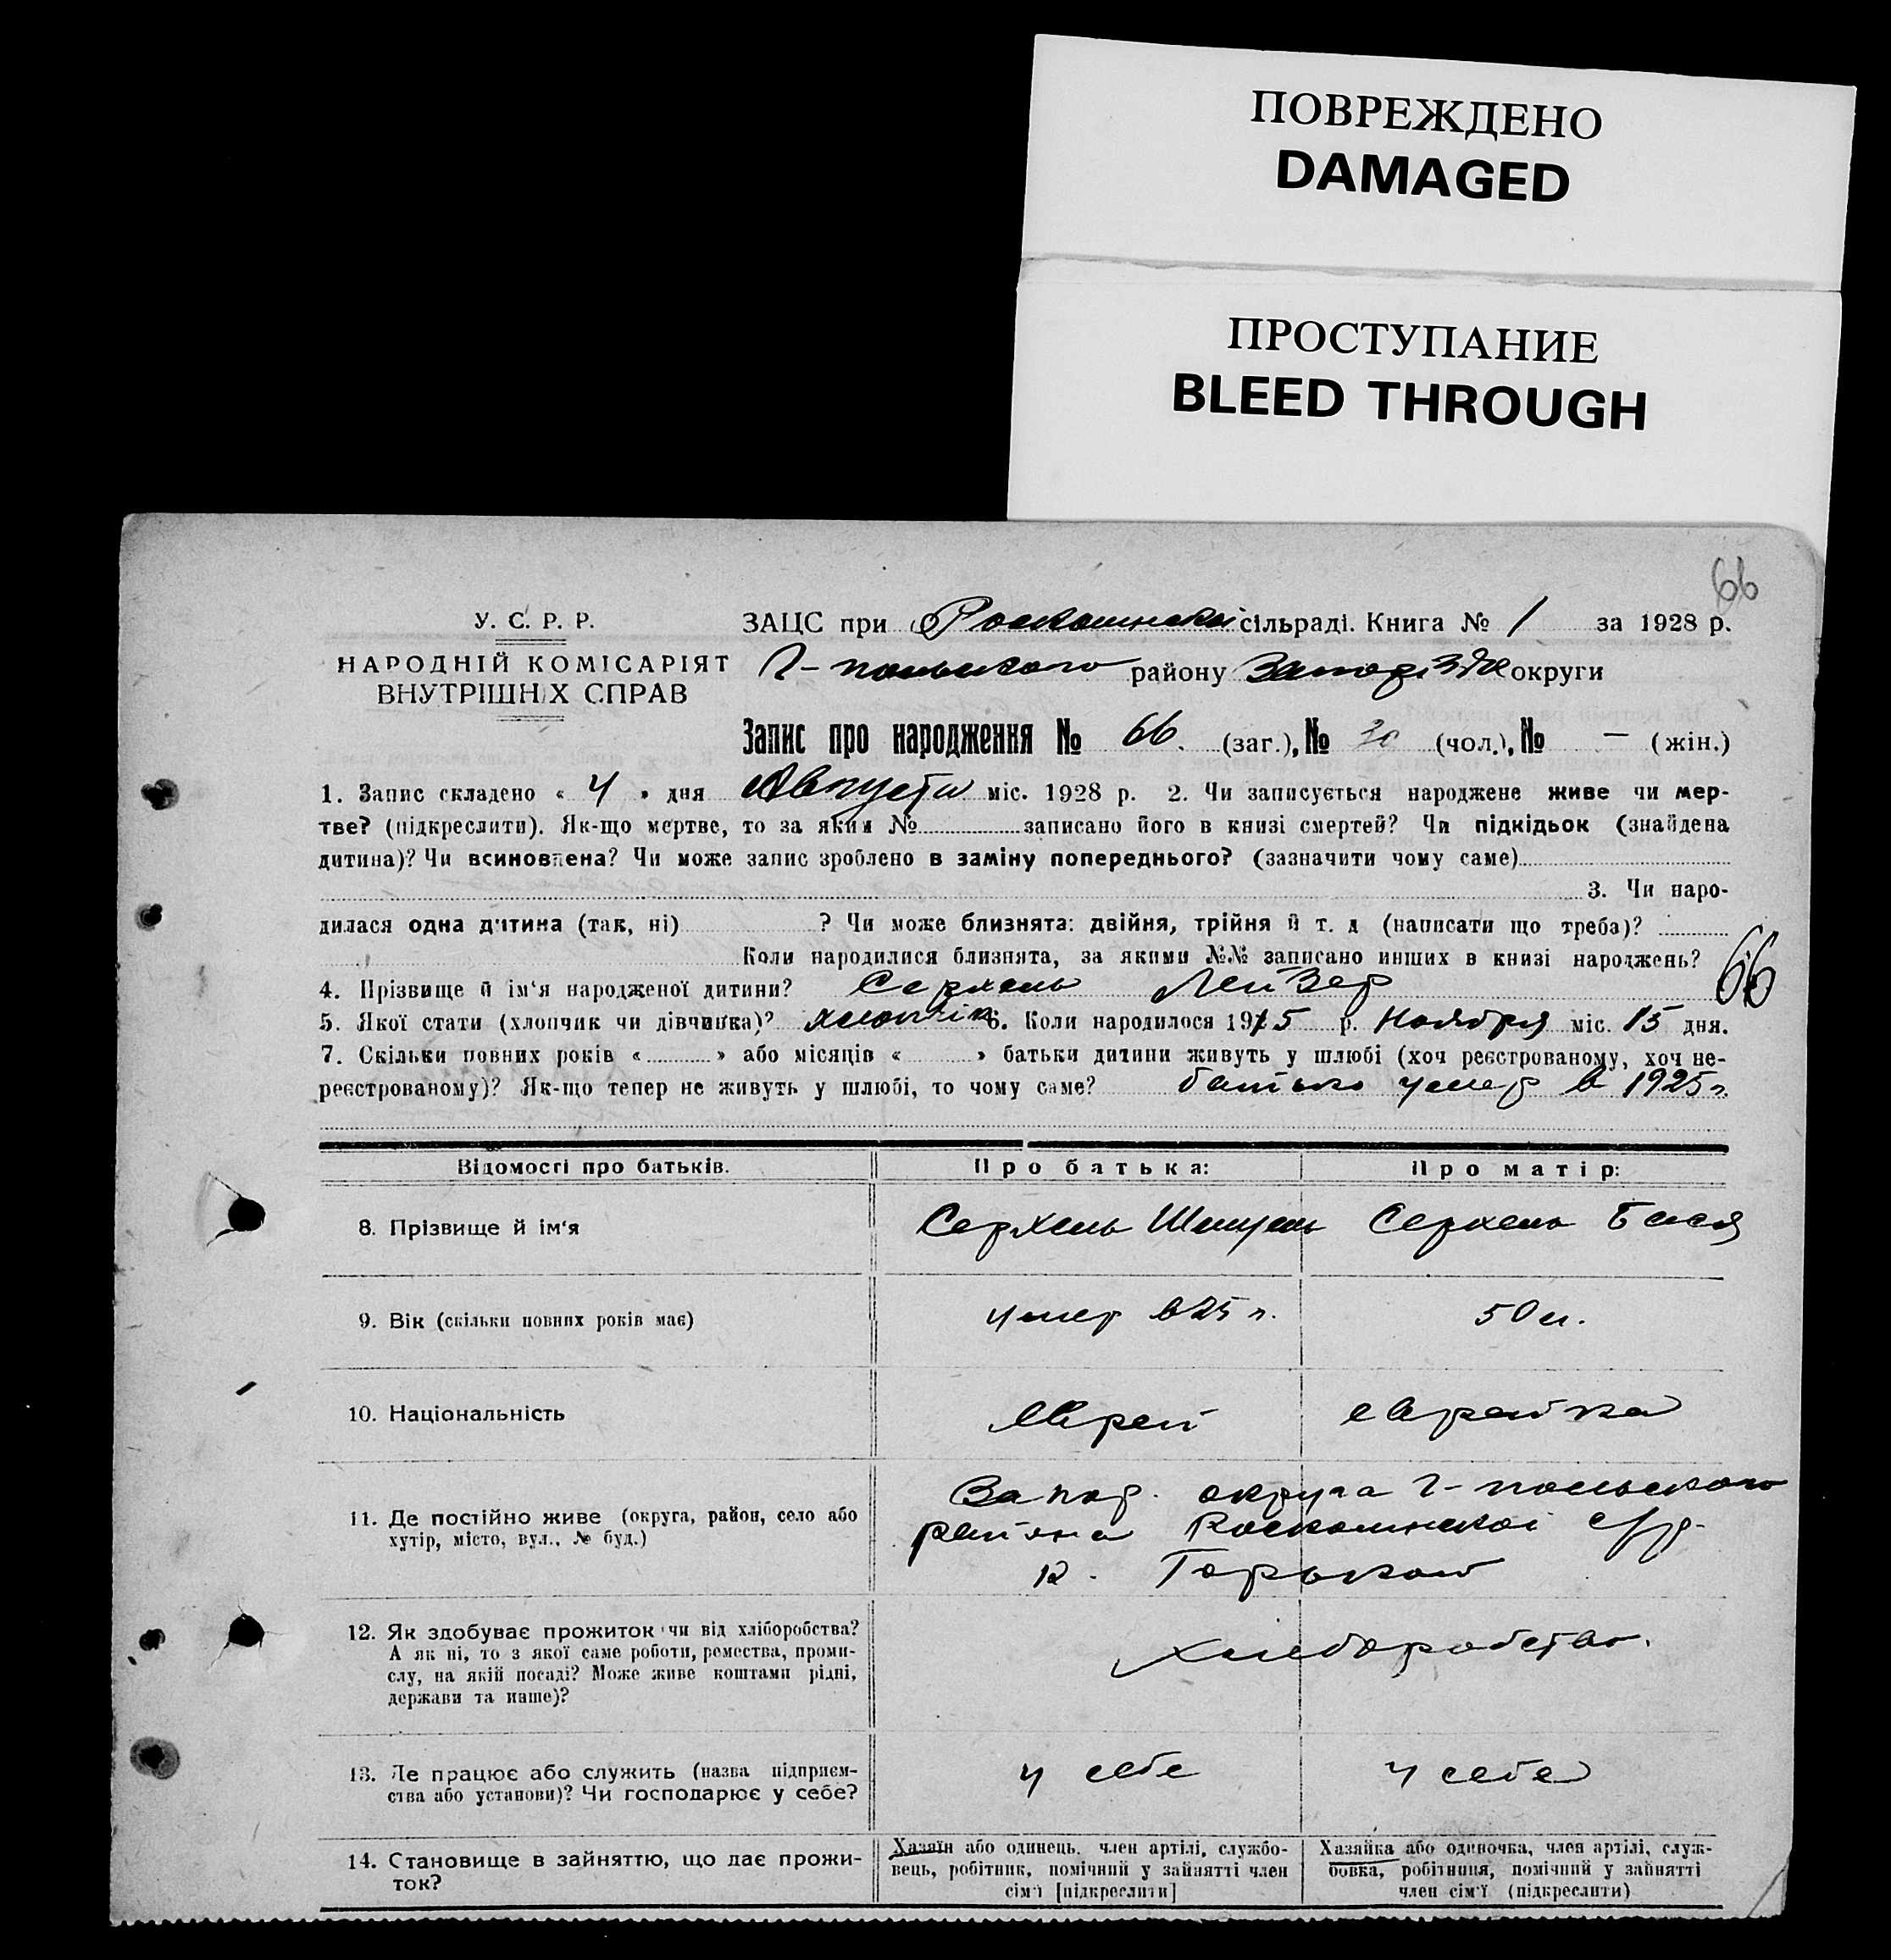 ПОВРЕЖДЕНО
DAMAGED
ПРОСТУПАНИЕ
BLEED THROUGH
66
У. С. Р. Р.
НАРОДНІЙ КОМІСАРІЯТ
ВНУТРІШНІХ СПРАВ
ЗАЦС при Роскошнской сільраді. Книга № 1 за 1928 р.
Г-польского району Запоріздк округи
Запис про народження № 66. (заг.), № 30 (чол.), № — (жін.)
1. Запис складено « 4 » дня Августа міс. 1928 р. 2. Чи записується народжене живе чи мер-
тве? (підкреслити). Як-що мертве, то за яким № записано його в книзі смертей? Чи підкідьок (знайдена
дитина)? Чи всиновлена? Чи може запис зроблено в заміну попереднього? (зазначити чому саме)
3. Чи наро-
дилася одна дитина (так, ні) ? Чи може близнята: двійня, трійня й т. д (написати що треба)?
Коли народилися близнята, за якими №№ записано инших в книзі народжень?
66
4. Прізвище й ім'я народженої дитини? Серхель Лейзер
5. Якої стати (хлопчик чи дівчинка)? хлопчік 6. Коли народилося 1915 р. Ноября міс. 15 дня.
7. Скільки повних років « » або місяців « » батьки дитини живуть у шлюбі (хоч реєстрованому, хоч не-
реєстрованому)? Як-що тепер не живуть у шлюбі, то чому саме? батько умер в 1925 г.
Відомості про батьків. Про батька: Про матір:
8. Прізвище й ім'я Серхель Серхель Бася
9. Вік (скільки повних років має) умер в 25 г. 50 л.
10. Національність Еврей еврейка
11. Де постійно живе (округа, район, село або
хутір, місто, вул., № буд.)
Запор. округа Г-польского
района Роскошнской с/р.
к. Горькой
12. Як здобуває прожиток чи від хліборобства?
А як ні, то з якої саме роботи, ремества, проми-
слу, на якій посаді? Може живе коштами рідні,
держави та инше)?
хлеборобство.
13. Де працює або служить (назва підприєм-
ства або установи)? Чи господарює у себе?
у себе у себе
14. Становище в зайняттю, що дає прожи-
ток?
Хазяїн або одинець, член артілі, службо-
вець, робітник, помічний у зайнятті член
сім'ї [підкреслити]
Хазяйка або одиночка, член артілі, служ-
бовка, робітниця, помічний у зайнятті
член сім'ї (підкреслити)